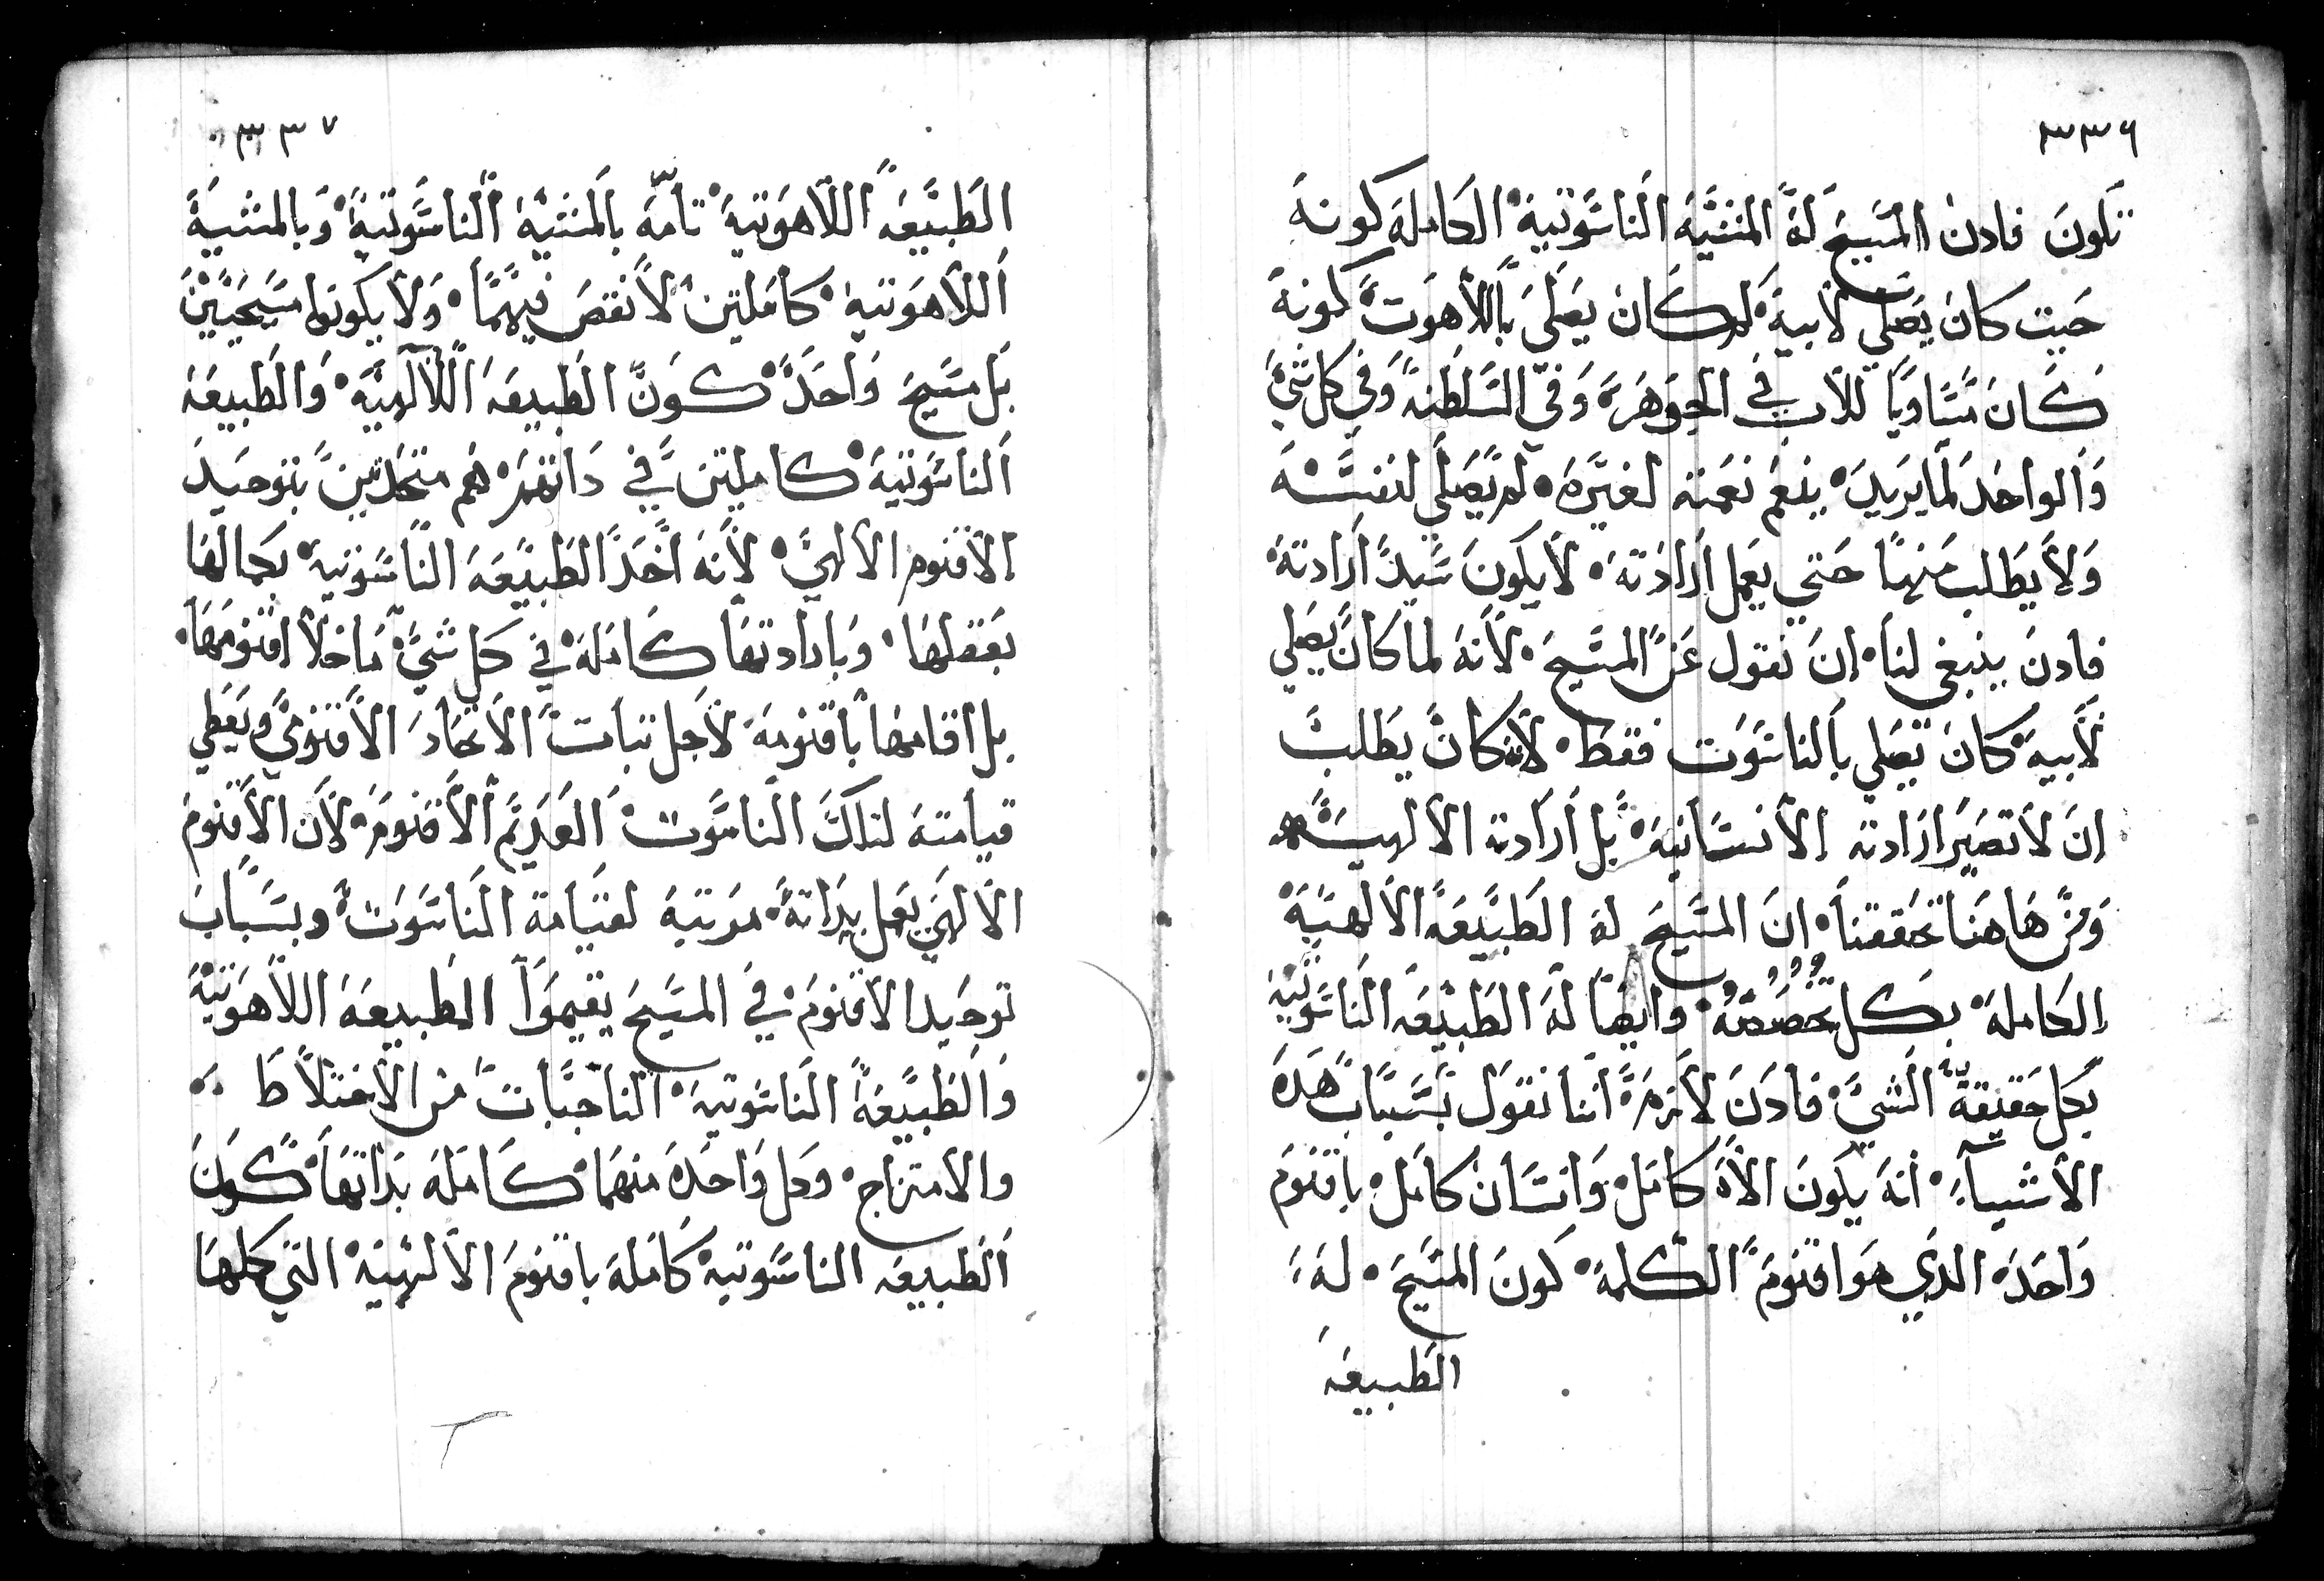 ٣٣٦
تكون فادن المسيح لة المشية الناسوتية الكاملة كونه
حيت كان يصلي لابية لم كان يصلي باللاهوت كونة
كان متساويا للاب في الجوهر وفي السلطنة وفي كل شي
والواحد لما يريد ينعم نعمته لغيره لم يصلي لنفسه
ولا يطلب منها حتي يعمل ارادته لا يكون سيد ارادته
فادن ينبغي لنا ان نقول عن المسيح لانه لما كان يصلي
لابيه كان يصلي بالناسوت فقط لانه كان يطلب
ان لا تصير ارادته الانسانية بل ارادته الالهية
ومن هاهنا تحققنا ان المسيح له الطبيعة الالهية
الكاملة بكل خصوصه وايضا له الطبيعة الناسوتية
بكل حقيقة الشي فادن لازم اننا نقول بسباب هده
الاشيآء انه يكون الاه كامل وانسان كامل باقنوم
واحده الدي هو اقنوم الكلمة كون المسيح له
الطبيعة
٣٣٧
الطبيعة اللاهوتية تامه بالمشية الناسوتية وبالمشية
اللاهوتية كاملتين لا نقص فيهما ولا يكونوا مسيحيين
بل مسيح واحد كون الطبيعة اللالهية والطبيعة
الناسوتية كاملتين في داتهم هم متحدتين بتوحيد
الاقنوم الالهي لانه اخد الطبيعة الناسوتية بكمالها
بعقلها وبارادتها كاملة في كل شي ما خلا اقنومها
بل اقامها باقنومه لاجل تبات الاتحاد الاقنومي ويعطي
قيامته لداك الناسوت العديم الاقنوم لان الاقنوم
الالهي يعمل بداته مرتبة لقيامة الناسوت وبسباب
توحيد الاقنوم في المسيح يقيموا الطبيعة اللاهوتية
والطبيعة الناسوتية الناجبات من الاختلاط
والامتزاج وكل واحده منهما كاملة بداتها كون
الطبيعه الناسوتية كاملة باقنوم الالهية التي كلها